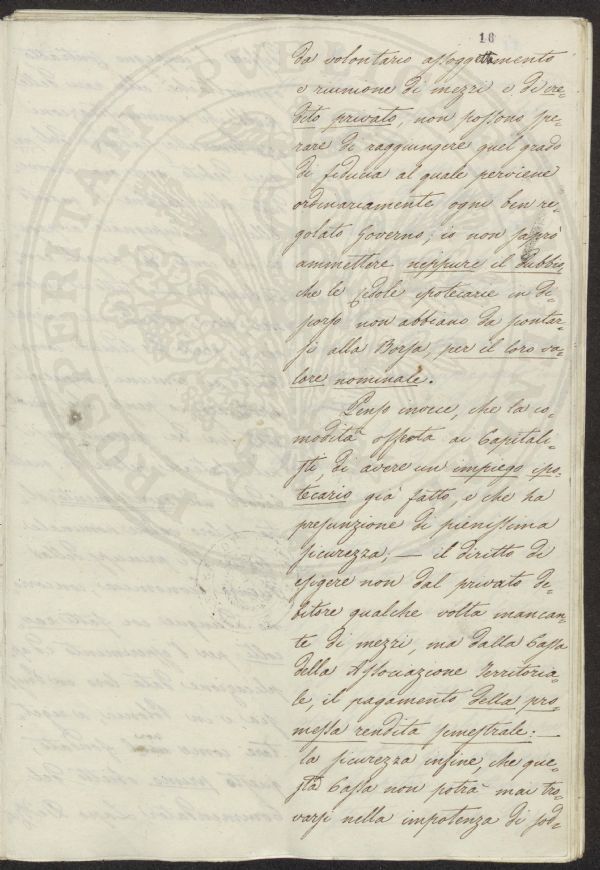 16
da volontario assoggettamento
e riunione di mezzi e di cre=
dito privato, non possono spe=
rare di raggiungere quel grado
di fiducia al quale perviene
ordinariamente ogni ben re=
golato Governo; io non saprò
ammettere neppure il dubbio,
che le Cedole ipotecarie in di=
scorso non abbiano da pontar=
si alla Borsa, per il loro va=
lore nominale.
Penso invece, che la co=
modità offerta ai Capitali=
sti, di avere un impiego ipo=
tecario già fatto, e che ha
presunzione di pienissima
sicurezza, — il diritto di
esigere non dal privato de=
bitore qualche volta mancan=
te di mezzi, ma dalla Cassa
della Associazione Territoria=
le, il pagamento della pro=
messa rendita semestrale: —
la sicurezza infine, che que=
sta Cassa non potrà mai tro=
varsi nella impotenza di sod=